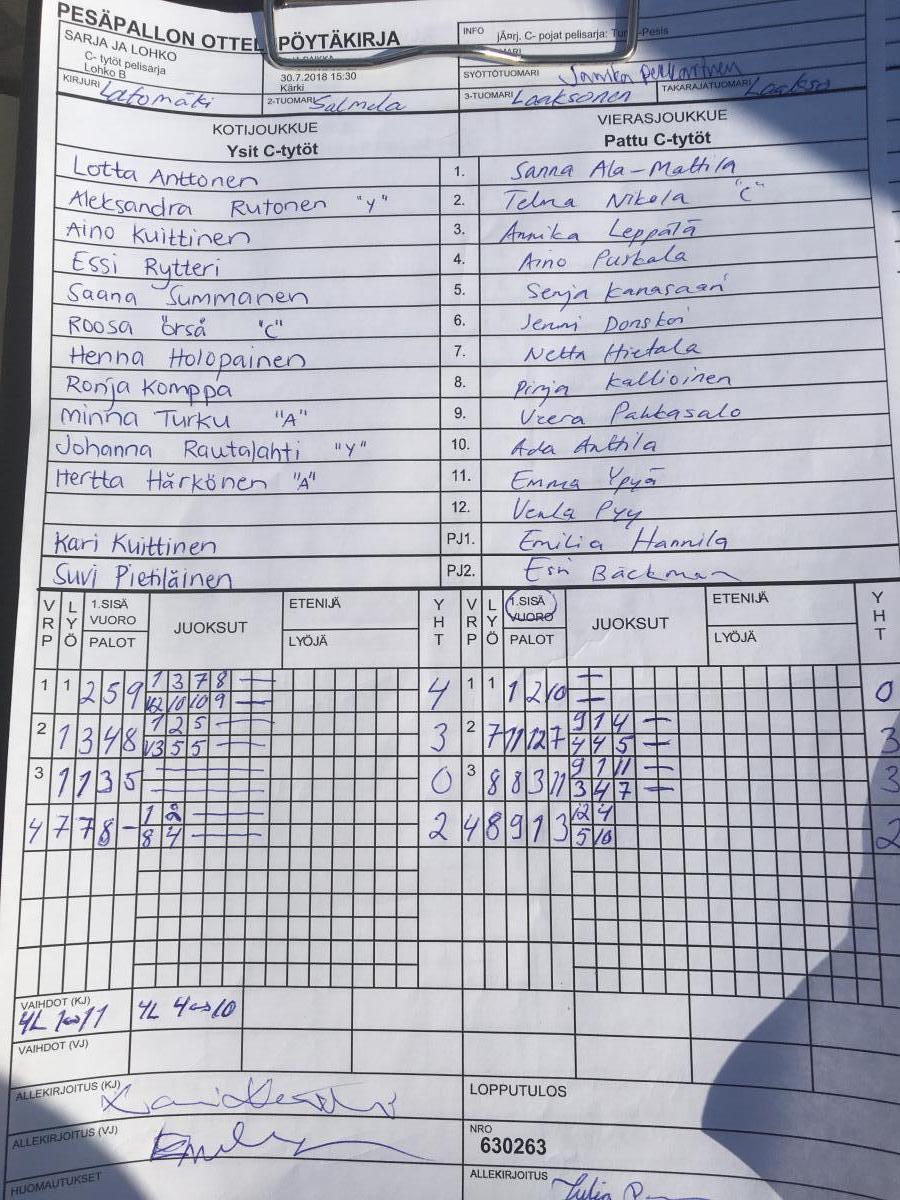 PESÄPALLON OTTEL PÖYTÄKIRJA
INFO jÄ¤rj. C- pojat pelisarja: Tur -Pesis
SARJA JA LOHKO
C- tytöt pelisarja
Lohko B
30.7.2018 15:30
Kärki
SYÖTTÖTUOMARI
KIRJURI Latomäki
2-TUOMARI Salmela
3-TUOMARI Laaksonen
TAKARAJATUOMARI Laakso
KOTIJOUKKUE
VIERASJOUKKUE
Ysit C-tytöt
Pattu C-tytöt
Lotta Anttonen 1. Sanna Ala-Mattila
Aleksandra Rutonen "Y" 2. Telma Nikola "C"
Aino Kuittinen 3. Annika Leppälä
Essi Rytteri 4. Aino Purkala
Saana Summanen 5. Senja Kanasaari
Roosa Örså "C" 6. Jenni Donskoi
Henna Holopainen 7. Netta Hietala
Ronja Komppa 8. Pinja Kallioinen
Minna Turku "A" 9. Veera Pahkasalo
Johanna Rautalahti "Y" 10. Ada Anttila
Hertta Härkönen "A" 11. Emma Ypyä
12. Venla Pyy
Kari Kuittinen PJ1. Emilia Hannila
Suvi Pietiläinen PJ2. Esri Bäckman
VRP LYÖ 1.SISÄ VUORO PALOT JUOKSUT ETENIJÄ LYÖJÄ YHT VRP LYÖ 1.SISÄ VUORO PALOT JUOKSUT ETENIJÄ LYÖJÄ YHT
1 1 2 5 9 1 3 7 8 — 4 1 1 1 2 10 — 0
12 10 10 9 — —
2 1 3 4 8 1 2 5 — 3 2 7 11 12 7 9 1 4 — 3
3 5 5 — 4 4 5 —
3 1 1 3 5 — 0 3 8 8 3 11 9 1 11 — 3
— 3 4 7 —
4 7 7 8 - 1 2 — 2 4 8 9 1 3 12 4 2
8 4 — 5 10
VAIHDOT (KJ)
4L 1↔11 4L 4↔10
VAIHDOT (VJ)
ALLEKIRJOITUS (KJ)
LOPPUTULOS
ALLEKIRJOITUS (VJ)
NRO
630263
HUOMAUTUKSET
ALLEKIRJOITUS